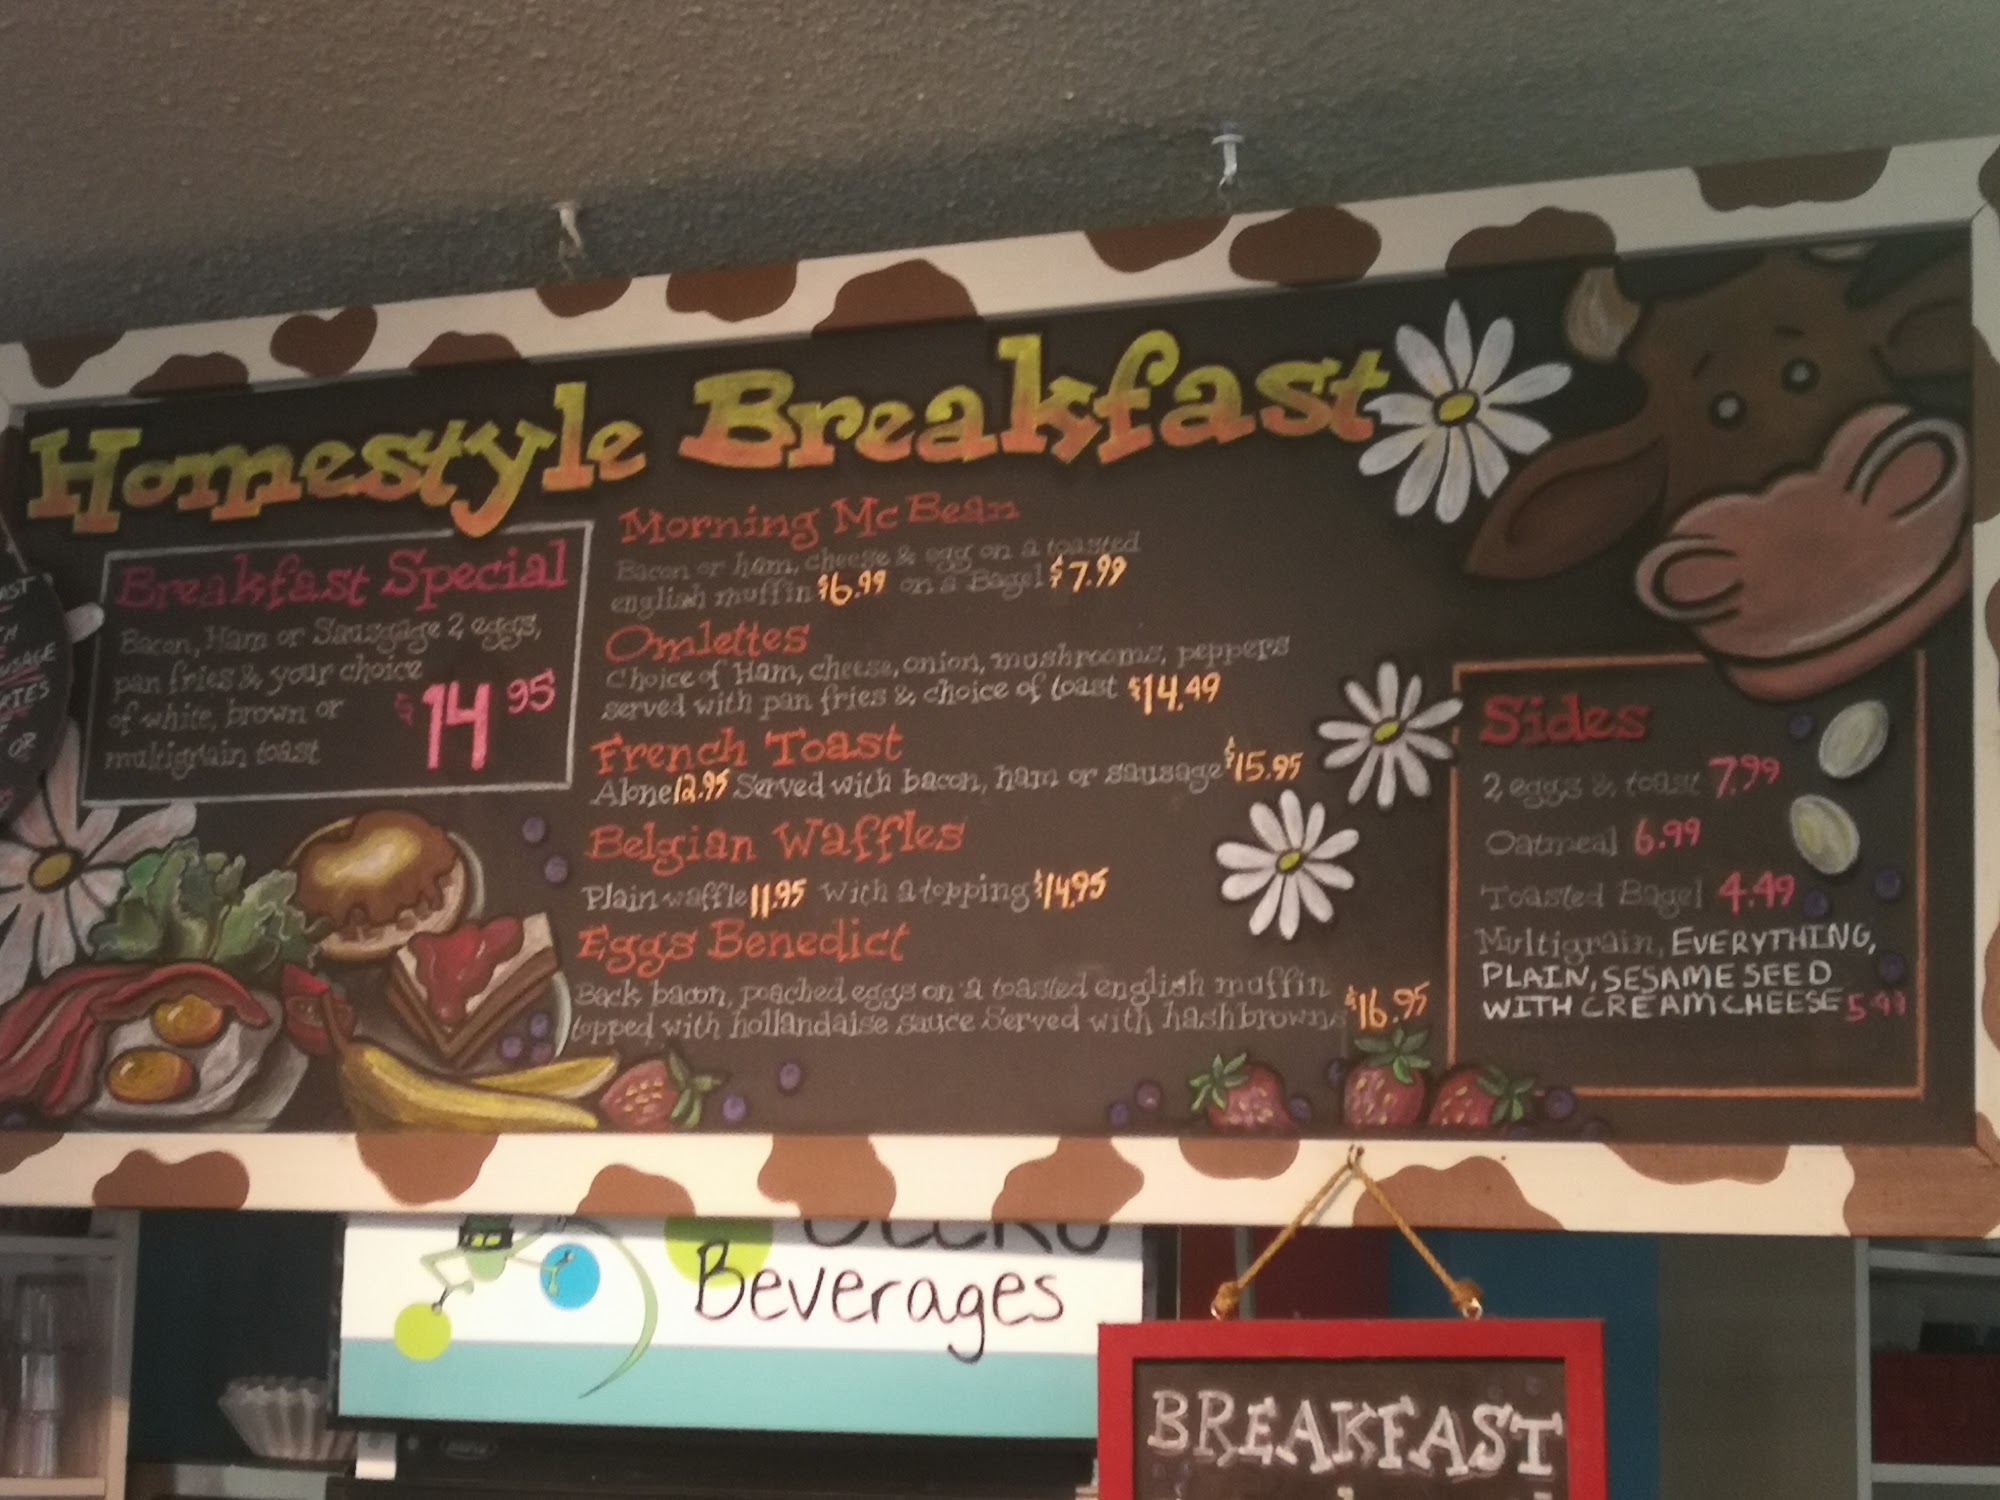 Homestyle Breakfast
Breakfast Special
Bacon, Ham or Sausgage 2 eggs,
pan fries & your choice
of white, brown or
multigriain toast
$14 95
Morning Mc Bean
Bacon or ham, cheese & egg on a toasted
english muffin $6.99 on a Bagel $7.99
Omlettes
Choice of Ham, cheese, onion, mushrooms, peppers
served with pan fries & choice of toast $14.49
French Toast
Alone 12.95 Served with bacon, ham or sausage $15.95
Belgian Waffles
Plain waffle 11.95 with a topping $14.95
Eggs Benedict
Back bacon, poached eggs on a toasted english muffin
topped with hollandaise sauce Served with hashbrowns $16.95
Sides
2 eggs & toast 7.99
Oatmeal 6.99
Toasted Bagel 4.49
Multigrain, EVERYTHING,
PLAIN, SESAME SEED
WITH CREAM CHEESE 5.99
USAGE
OR
Beverages
BREAKFAST